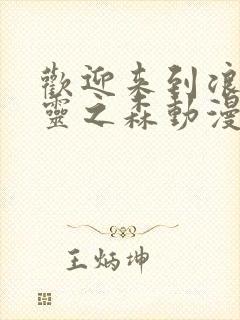 歡迎来到浪
靈之森動漫
王炳坤